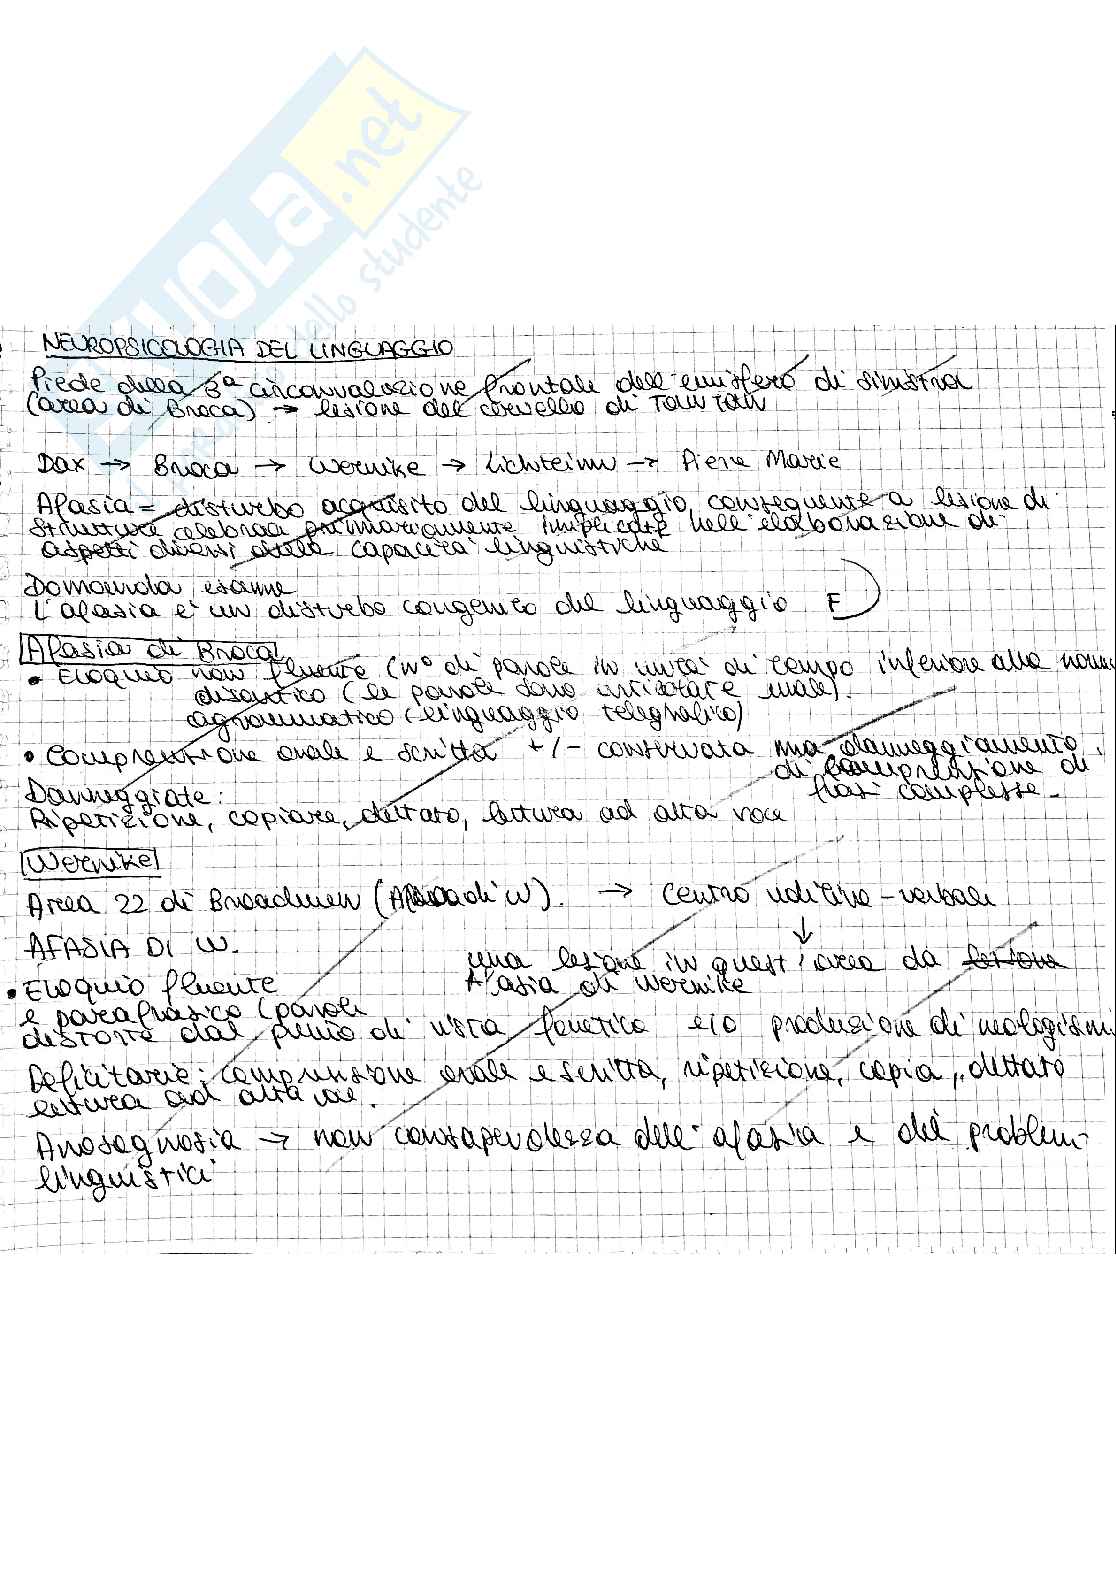 SKUOLA.net
il portale dello studente
NEUROPSICOLOGIA DEL LINGUAGGIO
Piede della 3ª circonvoluzione frontale dell'emisfero di sinistra
(area di Broca) → lesione del cervello di TAN TAN
Dax → Broca → Wernike → Lichteim → Piere Marie
Afasia = disturbo acquisito del linguaggio, conseguente a lesione di
strutture celebrali primariamente implicate nell'elaborazione di
aspetti diversi della capacità linguistiche
Domanda esame
L'afasia è un disturbo congenito del linguaggio F
Afasia di Broca
• Eloquio non fluente (n° di parole in unità di tempo inferiore alla norma
disartrico (le parole sono articolate male).
agrammatico (linguaggio telegrafico)
• Comprensione orale e scritta +/- conservata ma danneggiamento
di comprensione di
frasi complesse.
Danneggiate:
Ripetizione, copiare, dettato, lettura ad alta voce
Wernike
Area 22 di Broadmen (Area di W). → centro uditivo-verbale
↓
AFASIA DI W.
una lesione in quest'area da
Afasia di Wernike
• Eloquio fluente
e parafrasico (parole
distorte dal punto di vista fonetico e/o produzione di neologismi
Deficitarie: comprensione orale e scritta, ripetizione, copia, dettato
lettura ad alta voce.
Anosognosia → non consapevolezza dell'afasia e dei problemi
linguistici